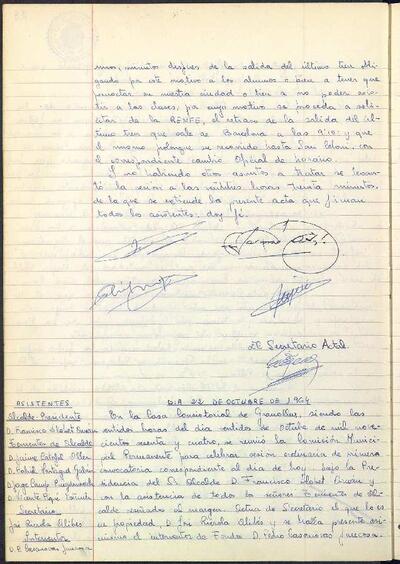 mos, minutos después de la salida del último tren obli-
gando por este motivo a los alumnos o bien a tener que
pernoctar en nuestra ciudad o bien a no poder asis-
tir a las clases, por cuyo motivo se proceda a soli-
citar de la RENFE, el retraso de la salida del úl-
timo tren que sale de Barcelona a las 9'10 y que
el mismo prolongue su recorrido hasta San Celoni, con
el correspondiente cambio Oficial de horario.
Y no habiendo otros asuntos a tratar se levan-
tó la sesión a las veintidós horas treinta minutos,
de la que se extiende la presente acta que firman
todos los asistentes: doy fé.
El Secretario Actal.
DIA 22 DE OCTUBRE DE 1964
ASISTENTES
Alcalde-Presidente
D. Francisco Llobet
Tenientes de Alcalde
D. Jaime
D.
D. Jorge Camp
D. Vicente
Secretario
José Rierola Alibés
Interventor
D. P. Casanovas
En la Casa Consistorial de Granollers, siendo las
veintidos horas del día veintidos de Octubre de mil nove-
cientos sesenta y cuatro, se reunió la Comisión Munici-
pal Permanente para celebrar sesión ordinaria de primera
convocatoria correspondiente al día de hoy, bajo la Pre-
sidencia del Sr. Alcalde D. Francisco Llobet y
con la asistencia de todos los señores Tenientes de Al-
calde señalados al margen. Actua de Secretario el que lo es
en propiedad, D. José Rierola Alibés y se halla presente asi-
mismo el interventor de Fondos D. Pedro Casanovas